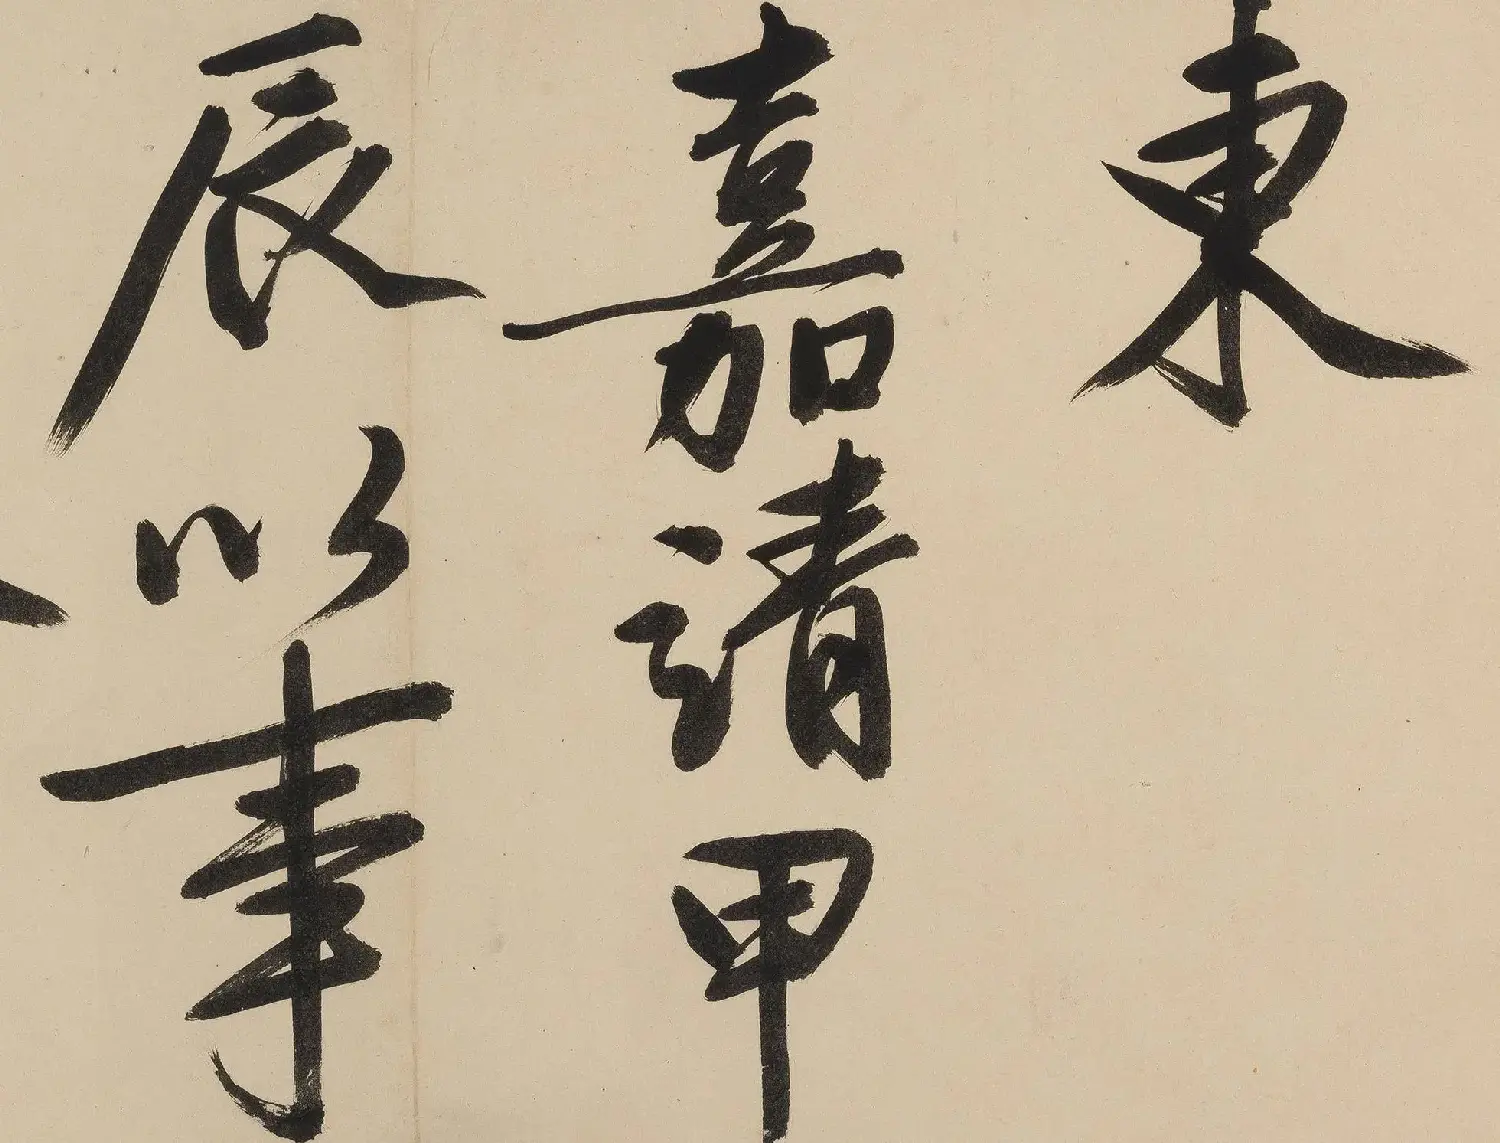 東
嘉靖甲
辰以事